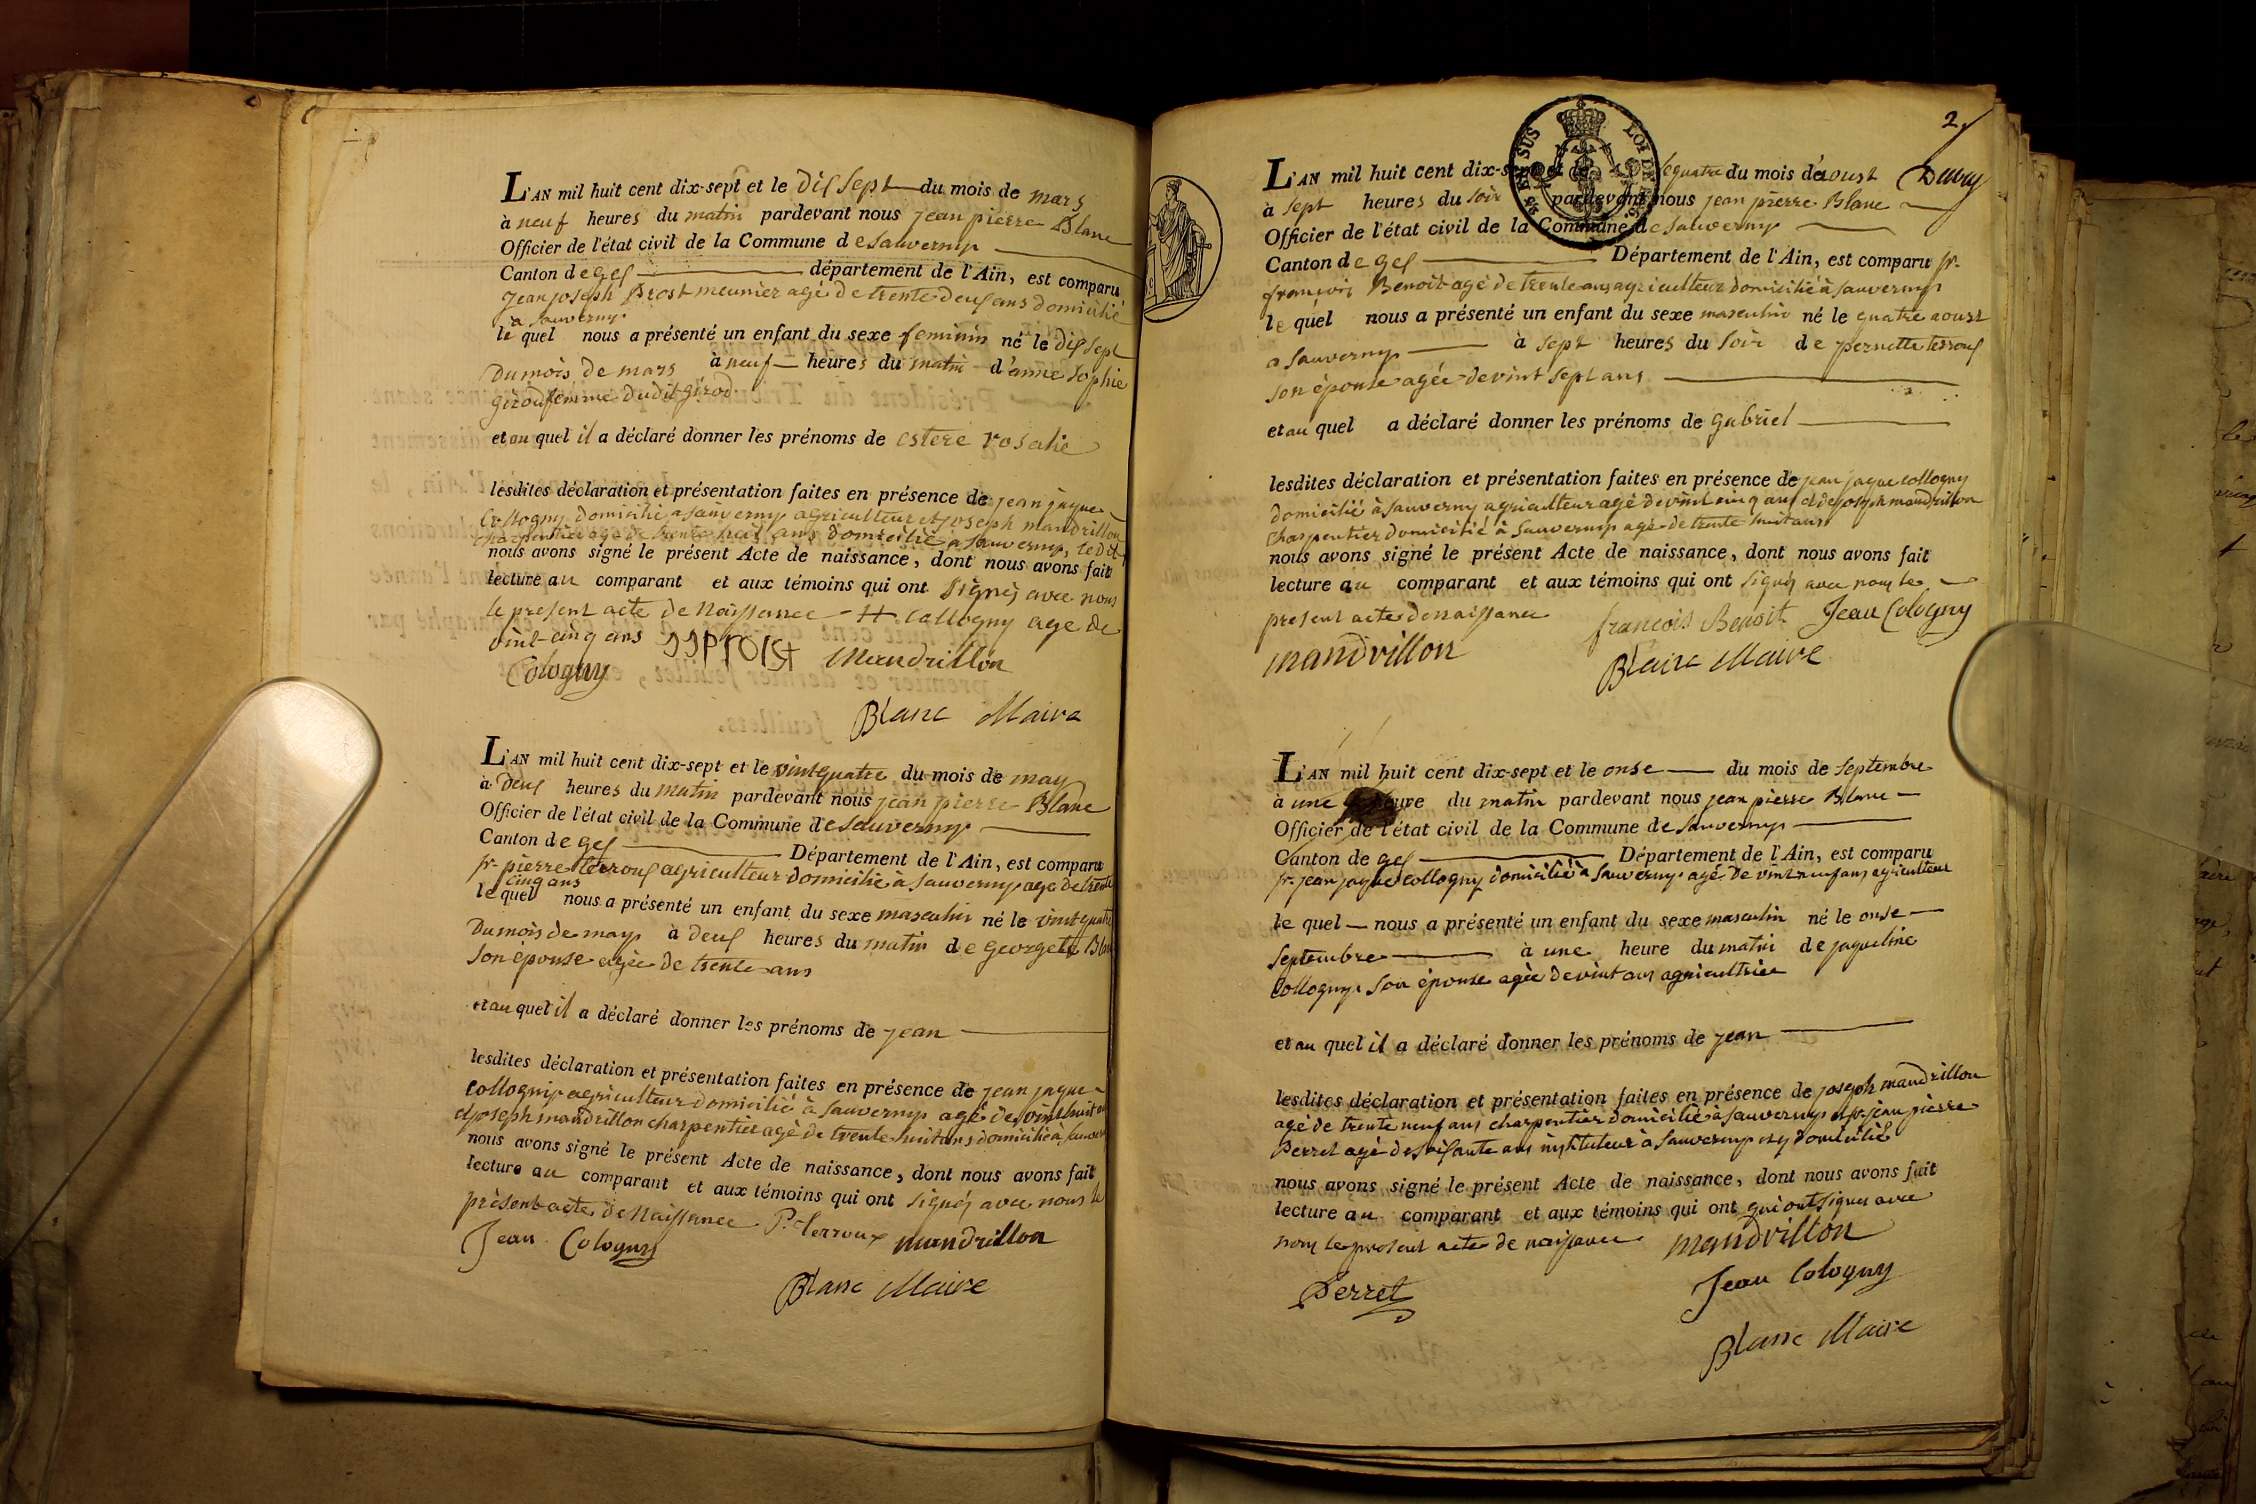 L'AN mil huit cent dix-sept et le dix sept du mois de mars
à neuf heures du matin pardevant nous jean pierre Blanc
Officier de l'état civil de la Commune de sauverny
Canton de gex département de l'Ain, est comparu
jean joseph Prost meunier agé de trente deux ans domicilié
a sauverny
le quel nous a présenté un enfant du sexe feminin né le dix sept
du mois de mars à neuf heures du matin d'anne sophie
girod femme dudit girod
et au quel il a déclaré donner les prénoms de estere rosalie
lesdites déclaration et présentation faites en présence de jean jaque
Collogny domicilié a sauverny agriculteur et joseph mandrillon
charpentier agé de trente huit ans domicilié a sauverny, ledit
nous avons signé le présent Acte de naissance, dont nous avons fait
lecture au comparant et aux témoins qui ont signés avec nous
le present acte de Naissance # Collogny age de
vint cinq ans JJ PROST Mandrillon
Cologny
Blanc Maire
L'AN mil huit cent dix-sept et le vint quatre du mois de may
à deux heures du matin pardevant nous jean pierre Blanc
Officier de l'état civil de la Commune de sauverny
Canton de gex Département de l'Ain, est comparu
sr. pierre terroux agriculteur domicilié à sauverny agé de trente
cinq ans
le quel nous a présenté un enfant du sexe masculin né le vint quatre
du mois de may à deux heures du matin de georgete Blan
son épouse agée de trente ans
et au quel il a déclaré donner les prénoms de jean
lesdites déclaration et présentation faites en présence de jean jaque
Collogny agriculteur domicilié à sauverny agé de vint huit an
et joseph mandrillon charpentier agé de trente huit ans domicilié à sauver
nous avons signé le présent Acte de naissance, dont nous avons fait
lecture au comparant et aux témoins qui ont signés avec nous le
présent acte de Naissance P. Terroux mandrillon
Jean Cologny
Blanc Maire
2
L'AN mil huit cent dix-sept et le quatre du mois d'aoust
à sept heures du soir pardevant nous jean pierre Blanc
Officier de l'état civil de la Commune de sauverny
Canton de gex Département de l'Ain, est comparu sr.
françois Benoit agé de trente ans agriculteur domicilié à sauverny
le quel nous a présenté un enfant du sexe masculin né le quatre aoust
a sauverny à sept heures du soir de pernette terroux
son épouse agée de vint sept ans
et au quel a déclaré donner les prénoms de gabriel
lesdites déclaration et présentation faites en présence de jean jaque collogny
domicilié à sauverny agriculteur agé de vint cinq ans et de joseph mandrillon
charpentier domicilié à sauverny agé de trente huit ans
nous avons signé le présent Acte de naissance, dont nous avons fait
lecture au comparant et aux témoins qui ont signés avec nous le
present acte de naissance françois Benoit Jean Cologny
mandrillon
Blanc Maire
L'AN mil huit cent dix-sept et le onse du mois de septembre
à une heure du matin pardevant nous jean pierre Blanc
Officier de l'état civil de la Commune de sauverny
Canton de gex Département de l'Ain, est comparu
sr. jean jaque collogny domicilié à sauverny agé de vint neuf ans agriculteur
le quel nous a présenté un enfant du sexe masculin né le onse
septembre à une heure du matin de jaqueline
Collogny son épouse agée de vint ans agricultrice
et au quel il a déclaré donner les prénoms de jean
lesdites déclaration et présentation faites en présence de joseph mandrillon
agé de trente neuf ans charpentier domicilié à sauverny et sr. jean pierre
Perret agé de soixante ans instituteur à sauverny et y domicilié
nous avons signé le présent Acte de naissance, dont nous avons fait
lecture au comparant et aux témoins qui ont qui ont signés avec
nous le present acte de naissance mandrillon
Perret Jean Cologny
Blanc Maire